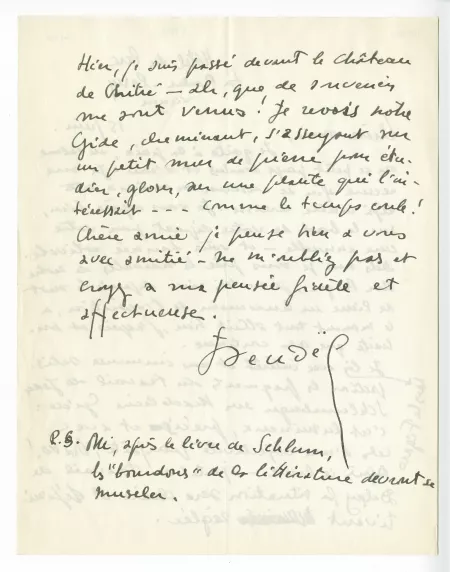 Hier, je suis passé devant le château
de Chitré — ah, que de souvenirs
me sont venus ! Je revois notre
Gide, cheminant, s'asseyant sur
un petit mur de pierre pour étu-
dier, gloser, sur une plante qui l'in-
téressait - - - comme le temps coule !
Chère amie je pense bien à vous
avec amitié - ne m'oubliez pas et
croyez à ma pensée fidèle et
affectueuse.
P.S. Oui, après le livre de Schlum,
les "bourdons" de la littérature devront se
museler.